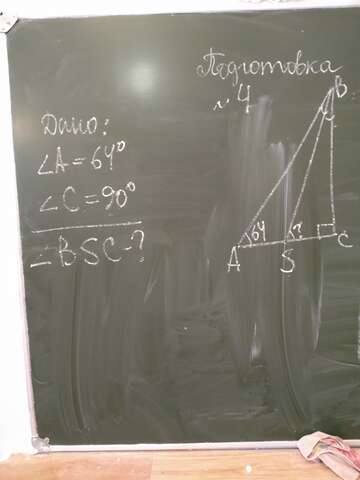 Подготовка
№ 4
Дано:
∠A = 64°
∠C = 90°
∠BSC - ?
B
64
?
A
S
C